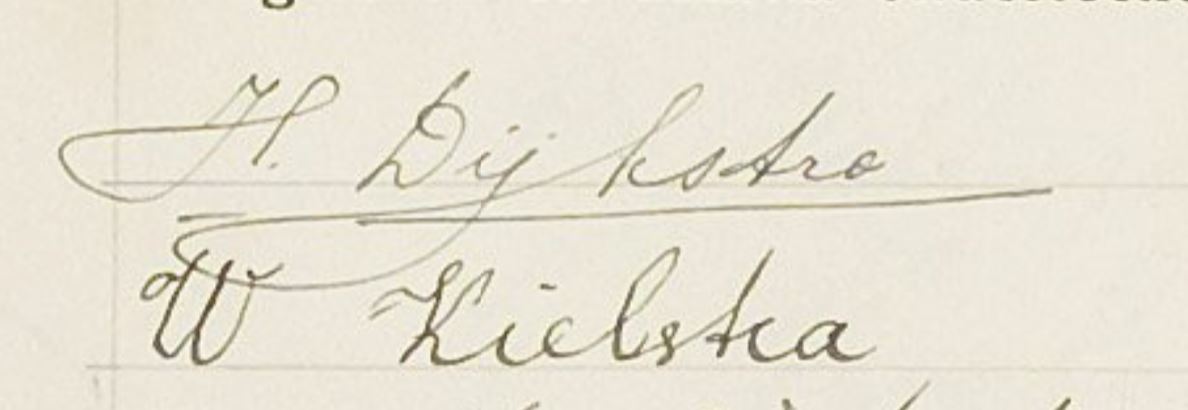 H. Dijkstra
W Kielstra